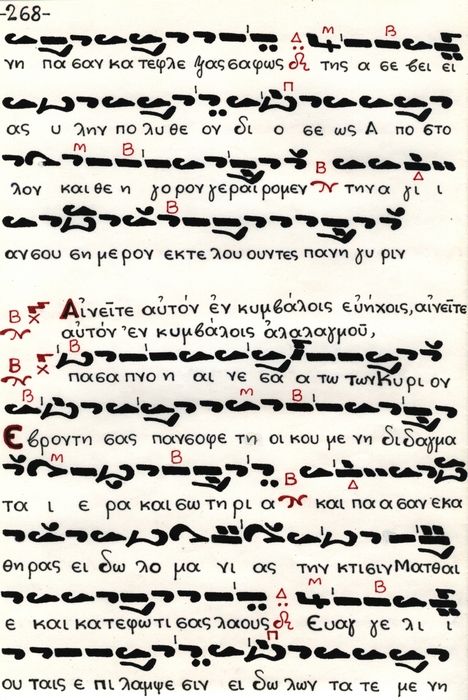 -268-
νη πα σαν κα τεφλε ξας σαφως της α σε βει ει
ας υ λην πο λυ θε ον δι ο σε ως Α πο στο
λον και θε η γο ρον γεραιρομεν την α γι ι
αν σου ση με ρον εκτε λου ουντες πανη γυ ριν
Αἰνεῖτε αὐτόν ἐν κυμβάλοις εὐήχοις, αἰνεῖτε
αὐτόν ἐν κυμβάλοις ἀλαλαγμοῦ,
πασα πνο η αι νε σα α τω των Κυρι ον
Ε βροντη σας πανσοφε τη οι κου με νη διδαγμα
τα ι ε ρα και σω τη ρι α και πα α σαν εκα
θη ρας ει δω λο μα νι ας την κτισιν Ματθαι
ε και κατεφωτι σας λαους Ευαγ γε λι ι
ου ταις ε πι λαμψε σιν ει δω λων τα τε με νη